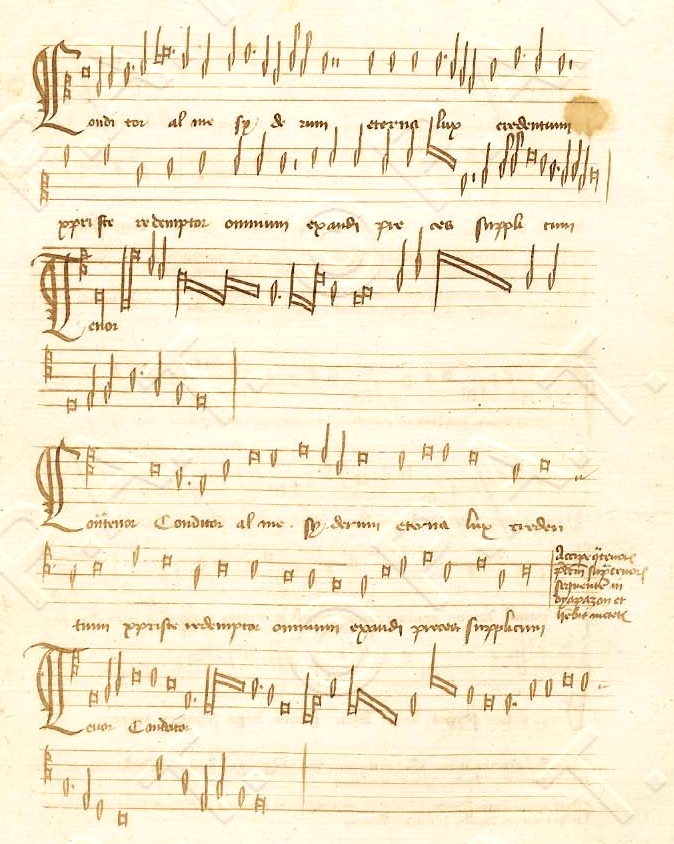 Condi tor al me sy de rum eterna lux credentium
xpriste redemptor omnium exaudi pre ces suppli cum
Tenor
Contratenor Conditor al me sy derum eterna lux creden
tium xpriste redemptor omnium exaudi preces supplicum
Accipe
sequente in
dyapazon et
Tenor Conditor